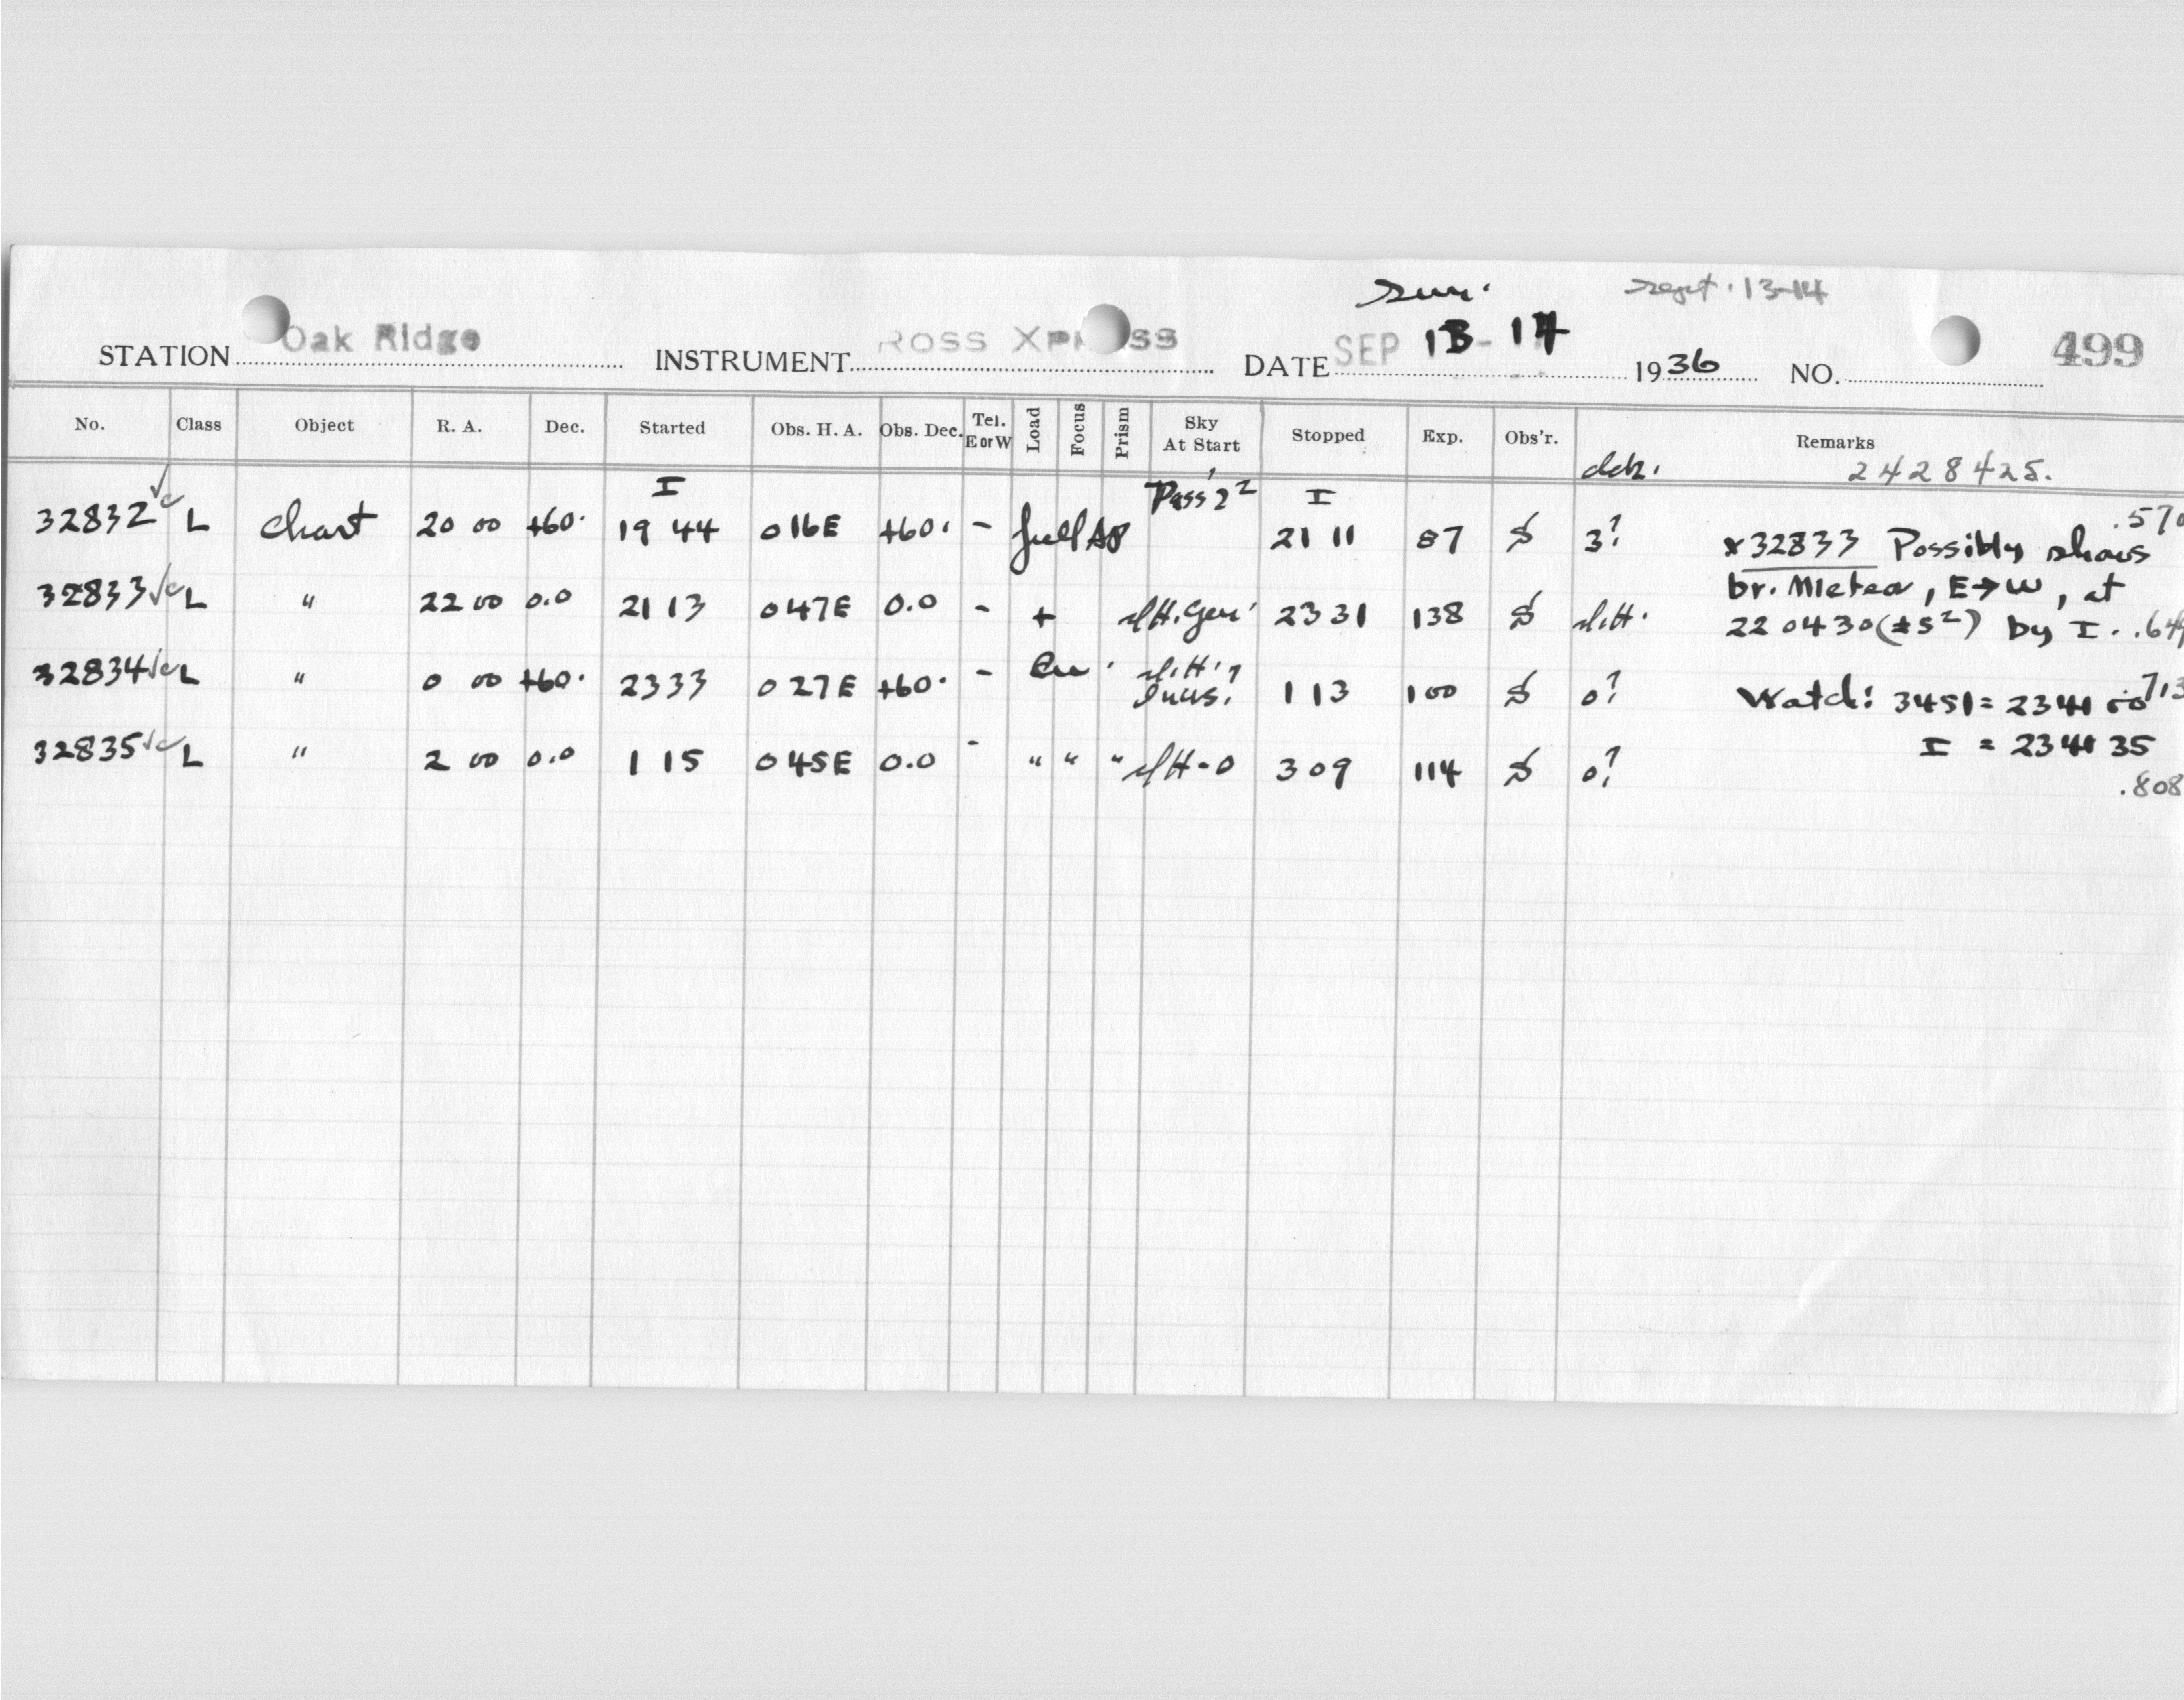 Sept. 13-14
STATION Oak Ridge INSTRUMENT Ross Xpress DATE SEP 13-14 1936 NO. 499
No. Class Object R. A. Dec. Started Obs. H. A. Obs. Dec. Tel. E or W Load Focus Prism Sky At Start Stopped Exp. Obs'r. Remarks
2428425.
I Pass' 2² I
32832 L Chart 20 00 +60. 19 44 0 16E +60. - full 21 11 87 S 3? .570
32833 L " 22 00 0.0 21 13 0 47E 0.0 - + 23 31 138 S
32834 L " 0 00 +60. 23 33 0 27E +60. - 1 13 100 S 0?
32835 L " 2 00 0.0 1 15 0 45E 0.0 - " " " 3 09 114 S 0?
x32833 Possibly shows
br. Meteor, E→W, at
22 04 30 (± 5²) by I. .649
Watch: 3451 = 2341 00 .713
I = 2341 35
.808